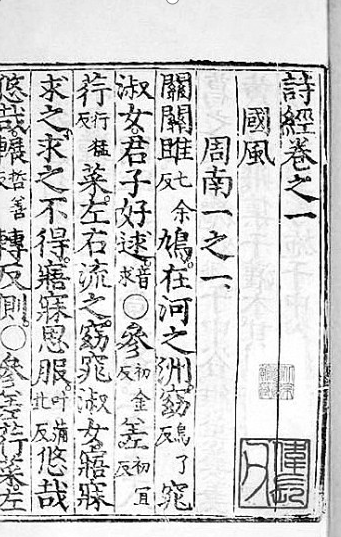 詩經卷之一
國風
周南一之一
關關雎七余反鳩。在河之洲。窈烏了反窕
淑女。君子好逑音求〇參初金反差初宜反
荇行猛反菜。左右流之。窈窕淑女。寤寐
求之。求之不得。寤寐思服叶蒲北反悠哉
悠哉。輾哲善反轉反側。〇參差荇菜。左